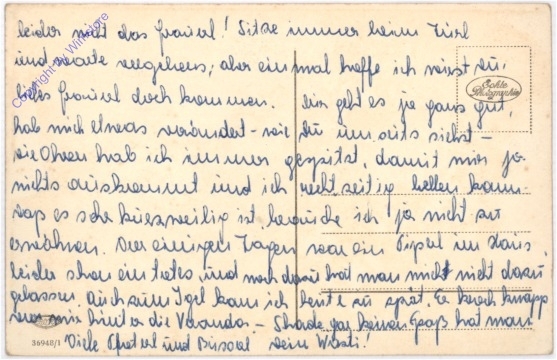 leider nicht das fraurl! Sitze immer beim Türl
und warte vergebens, aber einmal hoffe ich wirst Du
liebes fraurl doch kommen. Mir geht es ja ganz gut,
hab mich etwas verändert - wie Du umseits siehst -
die Ohren hab ich immer gespitzt, damit mir ja
nichts auskommt und ich rechtzeitig bellen kann.
Dass es sehr kurzweilig ist, brauche ich ja nicht zu
erwähnen. Vor einigen Tagen war ein Pipserl im Haus
leider schon ein totes, und noch dazu hat man mich nicht dazu
gelassen. Auch zum Igel kam ich heute zu spät. Er kroch knapp
vor mir hinter die Veranda. - Schade, gar keinen Spaß hat man
Viele Pfoterl und Busserl Dein Wasti!
Echte
Photographie
36940/1
Copyright by Winstore